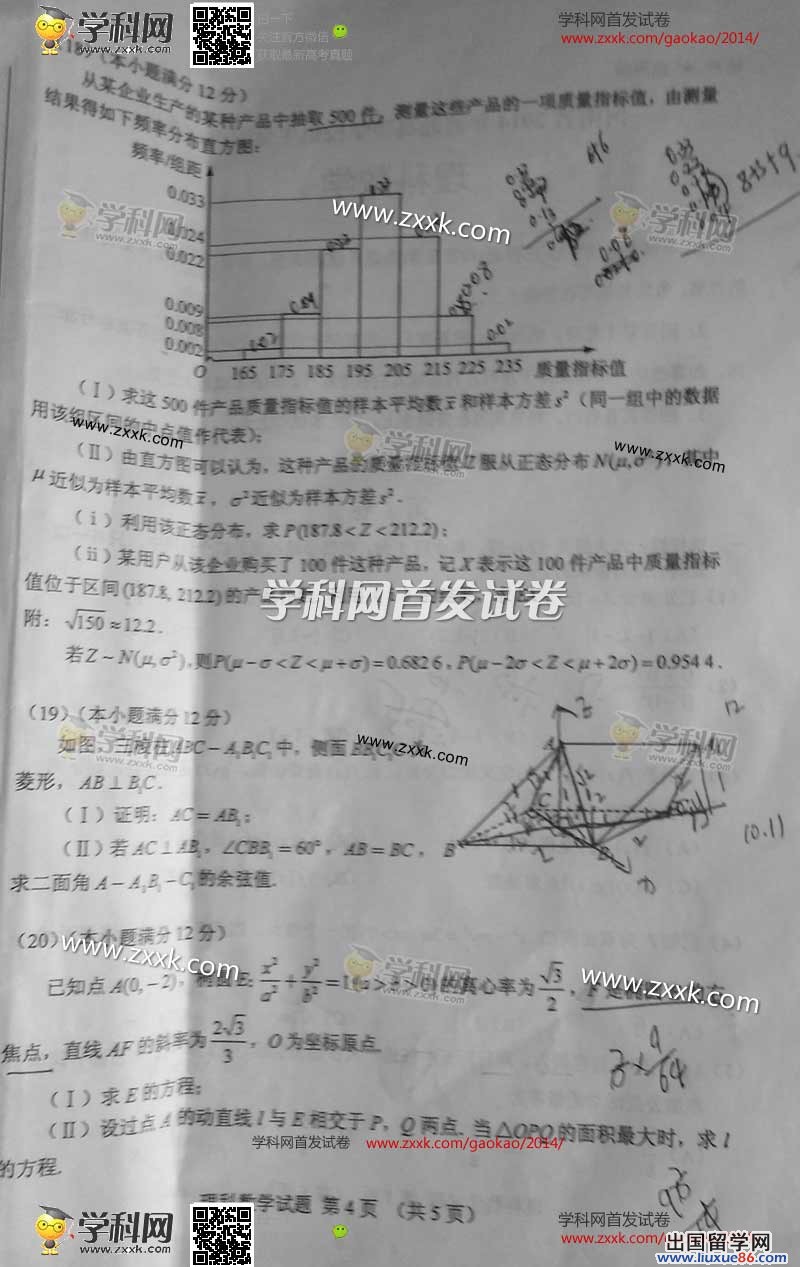 学科网
www.zxxk.com
扫一下
关注官方微信
获取最新高考真题
学科网首发试卷
www.zxxk.com/gaokao/2014/
(本小题满分12分)
从某企业生产的某种产品中抽取500件,测量这些产品的一项质量指标值,由测量
结果得如下频率分布直方图:
频率/组距
0.033
0.024
0.022
0.009
0.008
0.002
O 165 175 185 195 205 215 225 235 质量指标值
学科网
www.zxxk.com
www.zxxk.com
学科网
www.zxxk.com
0.02
0.08
0.02
8+5+9
(Ⅰ)求这500件产品质量指标值的样本平均数x̄和样本方差s²(同一组中的数据
用该组区间的中点值作代表);
www.zxxk.com
学科网
www.zxxk.com
(Ⅱ)由直方图可以认为,这种产品的质量指标值Z服从正态分布N(μ,σ²),其中
μ近似为样本平均数x̄,σ²近似为样本方差s².
(ⅰ)利用该正态分布,求P(187.8<Z<212.2);
(ⅱ)某用户从该企业购买了100件这种产品,记X表示这100件产品中质量指标
值位于区间(187.8,212.2)的产
学科网首发试卷
附:√150≈12.2.
若Z~N(μ,σ²),则P(μ-σ<Z<μ+σ)=0.6826,P(μ-2σ<Z<μ+2σ)=0.9544.
学科网
www.zxxk.com
(19)(本小题满分12分)
如图,三棱柱ABC-A₁B₁C₁中,侧面BB₁C₁C
www.zxxk.com
菱形,AB⊥B₁C.
(Ⅰ)证明:AC=AB₁;
(Ⅱ)若AC⊥AB₁,∠CBB₁=60°,AB=BC,
求二面角A-A₁B₁-C₁的余弦值.
A
B
C
12
(0.1)
(20)(本小题满分12分)
www.zxxk.com
学科网
www.zxxk.com
www.zxxk.com
已知点A(0,-2),椭圆E:x²/a²+y²/b²=1(a>b>0)的离心率为√3/2,F是椭圆的右
焦点,直线AF的斜率为2√3/3,O为坐标原点.
(Ⅰ)求E的方程;
(Ⅱ)设过点A的动直线l与E相交于P,Q两点.当△OPQ的面积最大时,求l
的方程.
学科网首发试卷 www.zxxk.com/gaokao/2014/
理科数学试题 第4页 (共5页)
学科网
www.zxxk.com
学科网
www.zxxk.com
学科网首发试卷
www.zxxk.com/gaokao/2014/
出国留学网
www.liuxue86.com